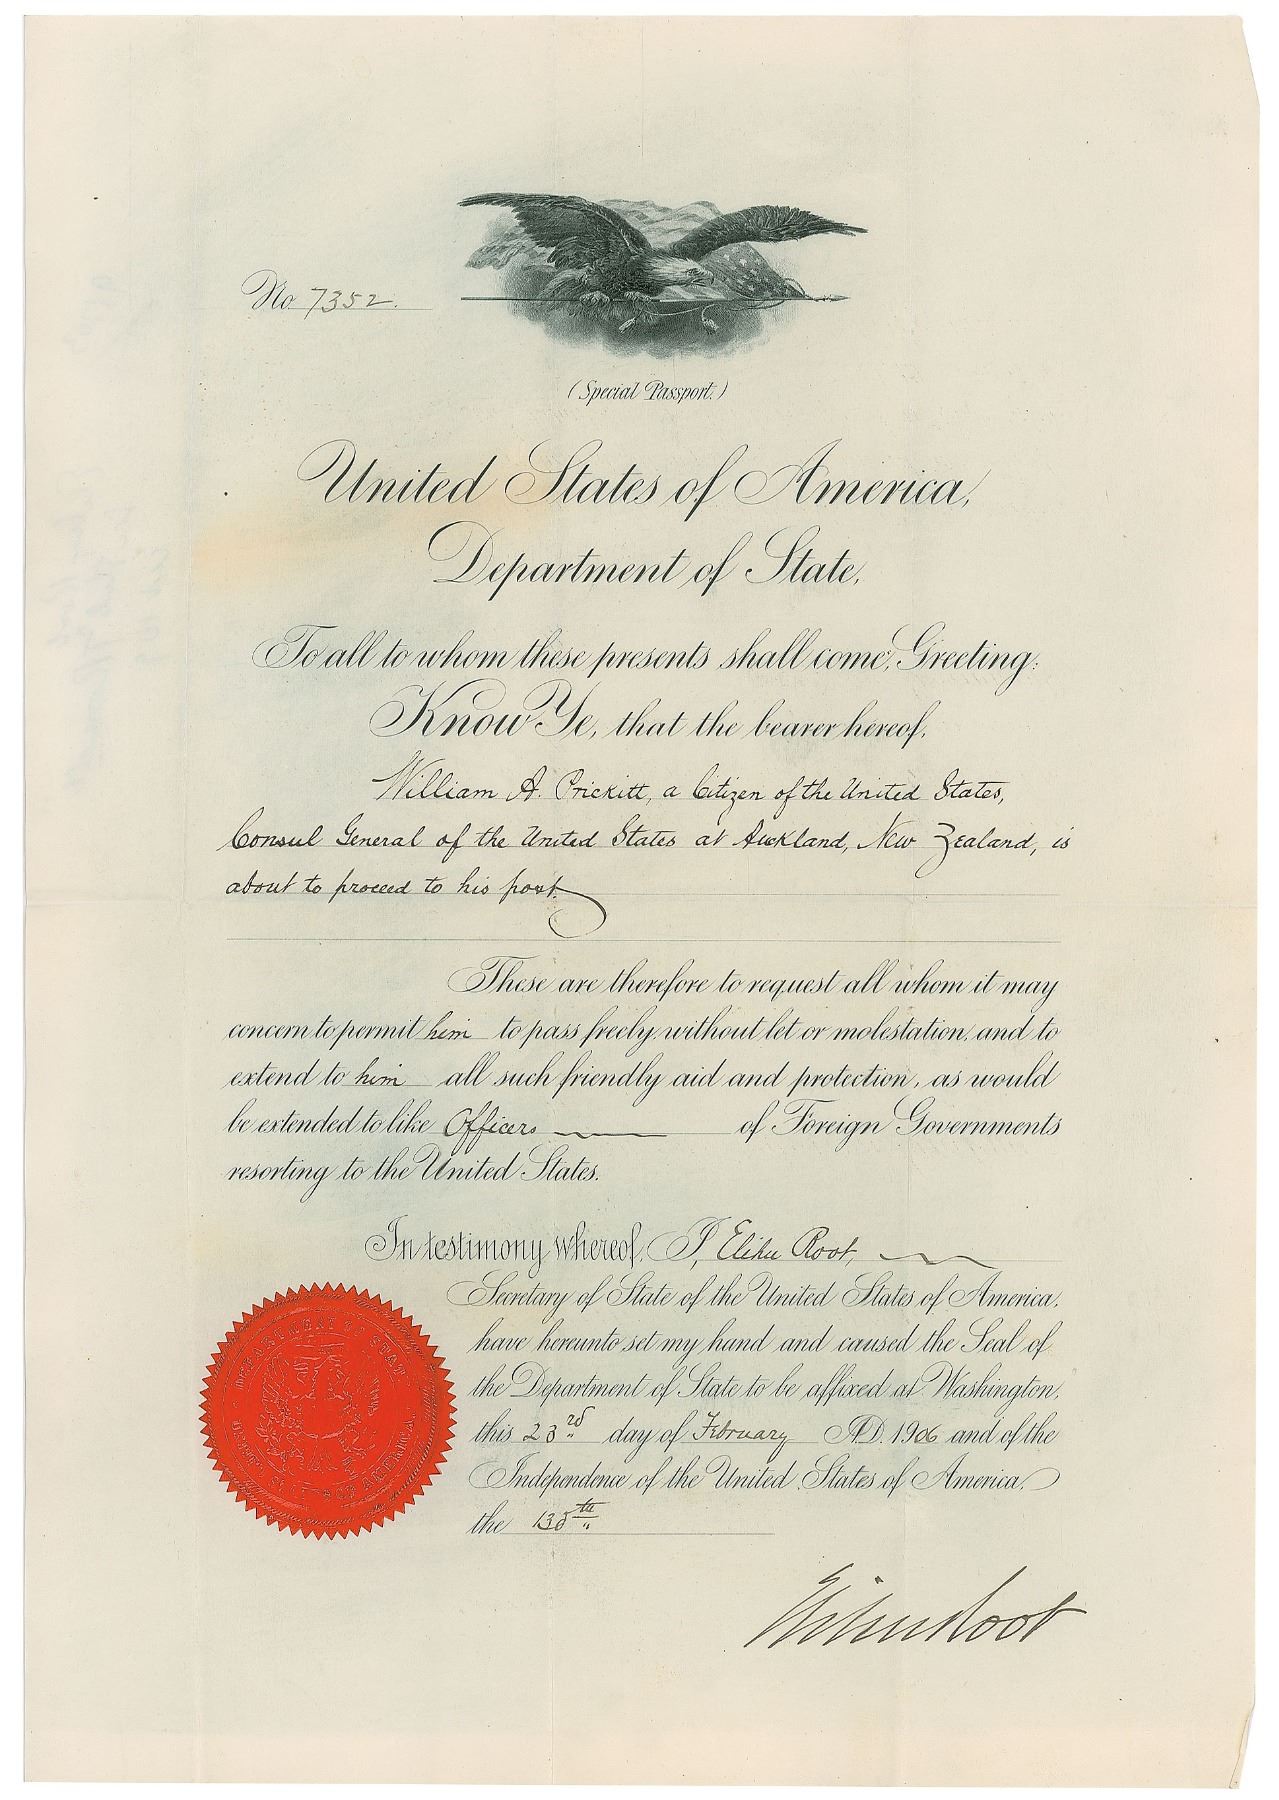 No 7352.
(Special Passport.)
United States of America,
Department of State,
To all to whom these presents shall come, Greeting:
Know Ye, that the bearer hereof,
William A. Prickitt, a Citizen of the United States,
Consul General of the United States at Auckland, New Zealand, is
about to proceed to his post.
These are therefore to request all whom it may
concern to permit him to pass freely, without let or molestation, and to
extend to him all such friendly aid and protection, as would
be extended to like Officers of Foreign Governments
resorting to the United States.
In testimony whereof, I, Elihu Root,
Secretary of State of the United States of America,
have hereunto set my hand and caused the Seal of
the Department of State to be affixed at Washington,
this 23rd day of February A.D. 1906 and of the
Independence of the United States of America,
the 130th
Elihu Root
DEPARTMENT OF STATE
UNITED STATES OF AMERICA